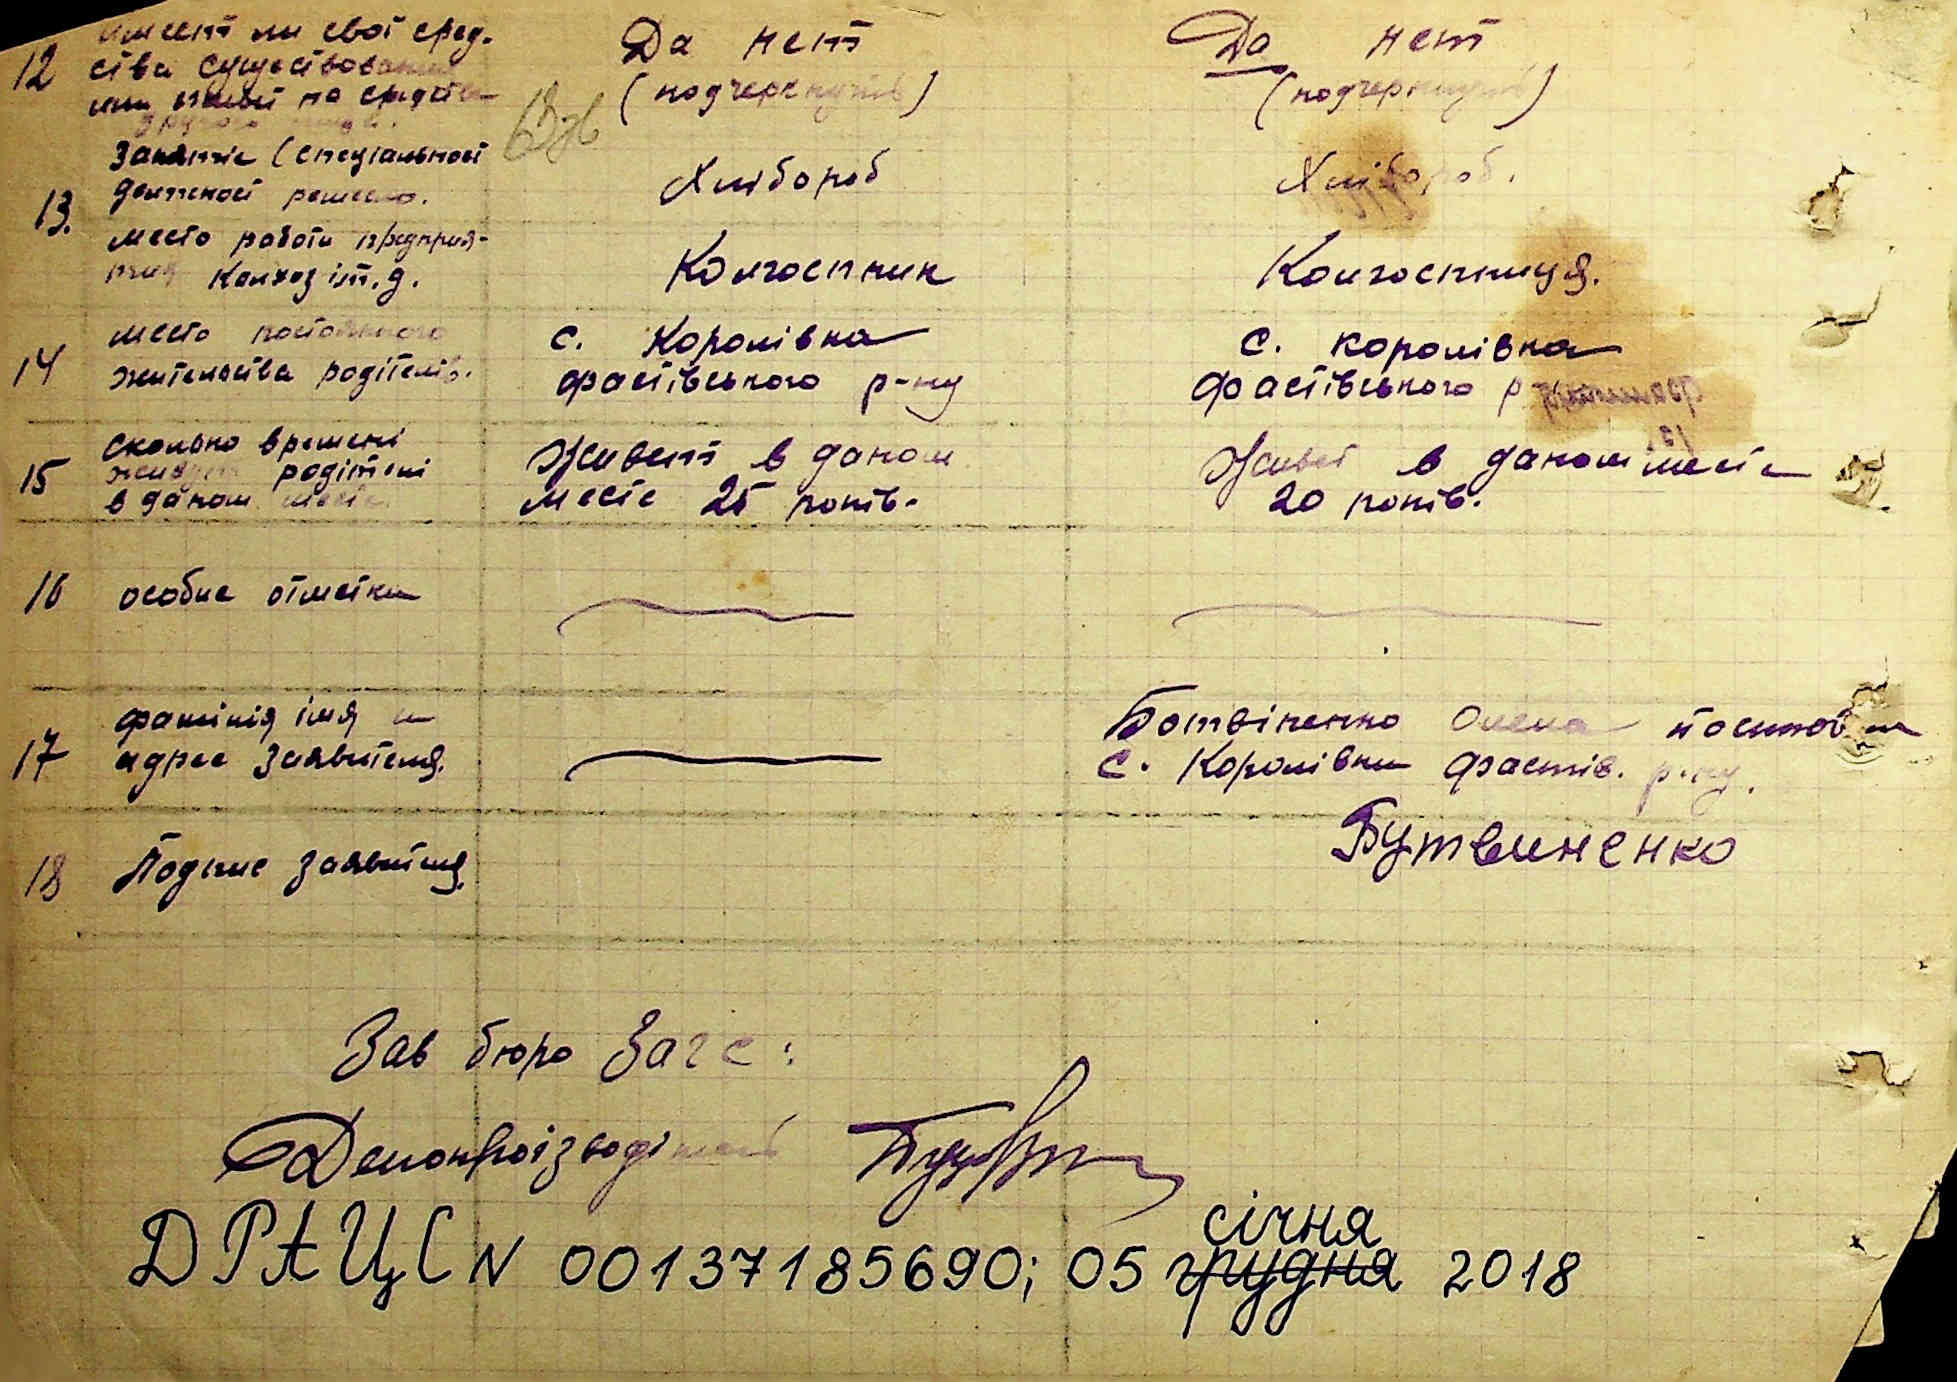 12 имеет ли свои сред-
ства существования
или живет на средства
другого лица.
Да нет
(подчеркнуть)
Да нет
(подчеркнуть)
13. Занятіе (спеціальност
должност ремесло.
Хлібороб
Хлібороб.
место работи предприя-
тия колхоз іт.д.
Колгоспник
Колгоспниця.
14 место постоянного
жительства родітелів.
с. Королівка
Фастівського р-ну
с. Королівка
Фастівського р
15 сколько времені
живут родітелі
в даном месте
Живет в даном
месте 25 років.
Живет в даном месте
20 років.
16 особие отметки
17 фамілія імя и
адрес заявителя.
Ботвіненко Олена
с. Королівки Фастів. р-ну.
18 Подпис заявителя.
Бутвиненко
Зав бюро Загс:
Делопроізводітель
ДРАЦС N 00137185690; 05 грудня січня 2018